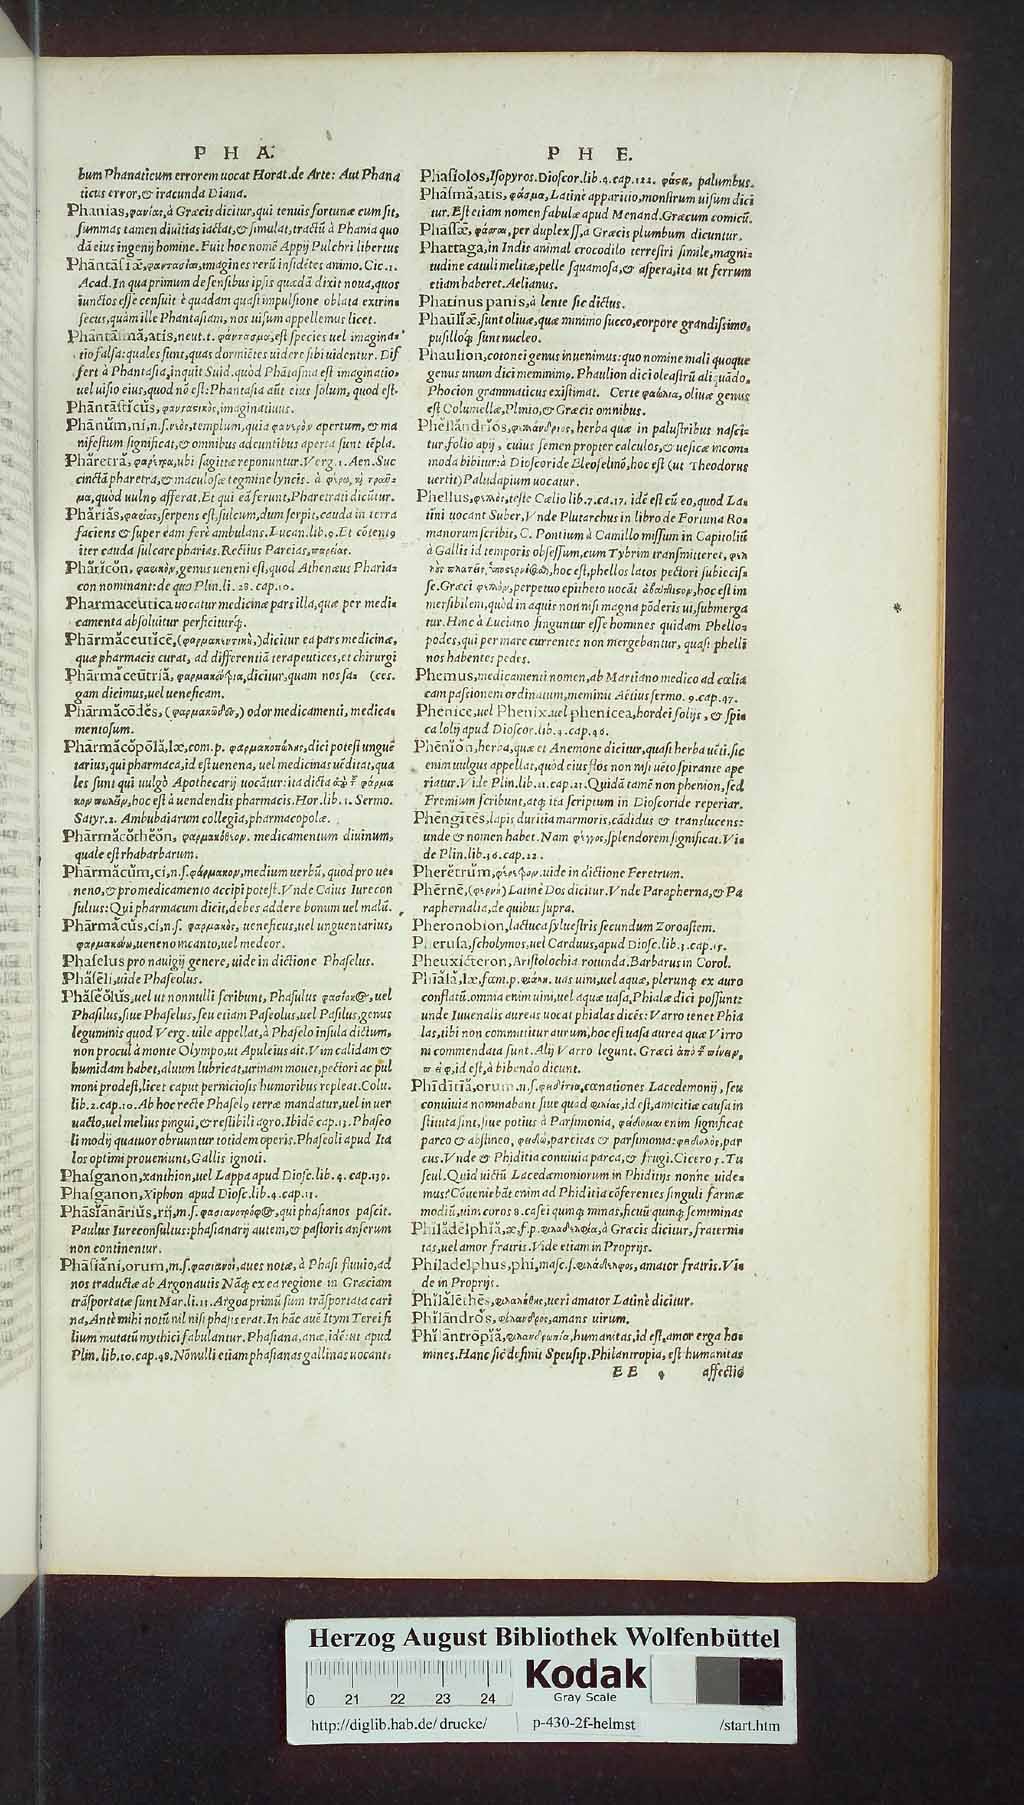 P H A.
bum Phanaticum errorem uocat Horat. de Arte: Aut Phana
ticus error, & iracunda Diana.
Phanias, φανίας, à Græcis dicitur, qui tenuis fortunæ cum sit,
summas tamen diuitias iactat, & simulat, tractū à Phania quo
dā eius ingenij homine. Fuit hoc nomē Appij Pulchri libertus
Phāntăsĭæ, φαντασίαι, imagines rerū insidētes animo. Cic. 1.
Acad. In qua primum de sensibus ipsis quædā dixit noua, quos
iunctos esse censuit è quadam quasi impulsione oblata extrin-
secus, quàm ille Phantasiam, nos uisum appellemus licet.
Phāntāsmă, atis, neut. t. φάντασμα, est species uel imagina-
tio falsa: quales sunt, quas dormiētes uidere sibi uidentur. Dif
fert à Phantasia, inquit Suid. quòd Phātasma est imaginatio,
uel uisio eius, quod nō est: Phantasia aūt eius solum, quod est.
Phāntāstĭcŭs, φανταστικὸς, imaginatiuus.
Phānŭm, ni, n. s. ναὸς, templum, quia φανερὸν apertum, & ma
nifestum significat, & omnibus adeuntibus aperta sunt tēpla.
Phărĕtră, φαρέτρα, ubi sagittæ reponuntur. Verg. 1. Aen. Suc
cinctā pharetra, & maculosæ tegmine lyncis. à φέρω, καὶ τραῦ-
μα, quòd uulnꝰ afferat. Et qui eā ferunt, Pharetrati dicūtur.
Phărĭas, φαείας, serpens est, sulcum, dum serpit, cauda in terra
faciens & super eam ferè ambulans. Lucan. lib. 9. Et cōtentꝰ
iter cauda sulcare pharias. Rectius Pareias, παρείας.
Phărĭcŏn, φαρικὸν, genus ueneni est, quod Athenæus Pharia-
con nominant: de quo Plin. li. 28. cap. 10.
Pharmaceutica uocatur medicinæ pars illa, quæ per medi-
camenta absoluitur perficiturq́;.
Phārmăceŭtĭcē, (φαρμακευτικὴ,) dicitur ea pars medicinæ,
quæ pharmacis curat, ad differentiā terapeutices, et chirurgi
Phārmăceūtrĭă, φαρμακεύτρια, dicitur, quam nos sa- (ces.
gam dicimus, uel ueneficam.
Phārmăcōdĕs, (φαρμακῶδες,) odor medicamenti, medica-
mentosum.
Phārmăcŏpōlă, læ, com. p. φαρμακοπώλης, dici potest unguē
tarius, qui pharmaca, id est uenena, uel medicinas uēditat, qua
les sunt qui uulgò Apothecarij uocātur: ita dicta ἀπὸ τ φάρμα
κον πωλεῖν, hoc est à uendendis pharmacis. Hor. lib. 1. Sermo.
Satyr. 2. Ambubaiarum collegia, pharmacopolæ.
Phārmăcŏthĕŏn, φαρμακόθεον, medicamentum diuinum,
quale est rhabarbarum.
Phārmăcŭm, ci, n. s. φάρμακον, medium uerbū, quod pro ue-
neno, & pro medicamento accipi potest. Vnde Caius Iurecon
sultus: Qui pharmacum dicit, debes addere bonum uel malū.
Phārmăcŭs, ci, n. s. φαρμακὸς, ueneficus, uel unguentarius,
φαρμακάω, ueneno incanto, uel medeor.
Phaselus pro nauigij genere, uide in dictione Phaselus.
Phăsēli, uide Phaseolus.
Phăsĕŏlŭs, uel ut nonnulli scribunt, Phasulus φασίολος, uel
Phasilus, siue Phaselus, seu etiam Paseolus, uel Pasilus, genus
leguminis quod Verg. uile appellat, à Phaselo insula dictum,
non procul à monte Olympo, ut Apuleius ait. Vim calidam &
humidam habet, aluum lubricat, urinam mouet, pectori ac pul
moni prodest, licet caput perniciosis humoribus repleat. Colu.
lib. 2. cap. 10. Ab hoc recte Phaselꝰ terræ mandatur, uel in uer
uacto, uel melius pingui, & restibili agro. Ibidē cap. 13. Phaseo
li modij quatuor obruuntur totidem operis. Phaseoli apud Ita
los optimi proueniunt, Gallis ignoti.
Phasganon, xanthion, uel Lappa apud Diosc. lib. 4. cap. 139.
Phasganon, Xiphon apud Diosc. lib. 4. cap. 11.
Phāsĭānārĭŭs, rij, m. s. φασιανοτρόφος, qui phasianos pascit.
Paulus Iureconsultus: phasianarij autem, & pastoris anserum
non continentur.
Phāsĭāni, orum, m. s. φασιανοὶ, aues notæ, à Phasi fluuio, ad
nos traductæ ab Argonautis Nāq; ex ea regione in Græciam
trāsportatæ sunt Mar. li. 13. Argoa primū sum trāsportata cari
na, Antè mihi notū nil nisi phasis erat. In hāc auē Itym Terei fi
lium mutatū mythici fabulantur. Phasiana, anæ, idē: ut apud
Plin. lib. 10. cap. 48. Nōnulli etiam phasianas gallinas uocant:
P H E.
Phasiolos, Isopyros. Dioscor. lib. 4. cap. 122. φάσσα, palumbus.
Phāsmă, atis, φάσμα, Latinè apparitio, monstrum uisum dici
tur. Est etiam nomen fabulæ apud Menand. Græcum comicū.
Phassæ, φάσσαι, per duplex ss, à Græcis plumbum dicuntur.
Phattaga, in Indis animal crocodilo terrestri simile, magni-
tudine catuli melitæ, pelle squamosa, & aspera, ita ut ferrum
etiam haberet. Aelianus.
Phatinus panis, à lente sic dictus.
Phaūlĭæ, sunt oliuæ, quæ minimo succo, corpore grandissimo,
pusilloq́; sunt nucleo.
Phaulion, cotonei genus inuenimus: quo nomine mali quoque
genus unum dici meminimꝰ. Phaulion dici oleastrū aliquādo,
Phocion grammaticus existimat. Certe φαύλια, oliuæ genus
est Columellæ, Plinio, & Græcis omnibus.
Phēllāndrĭŏs, φελλάνδριος, herba quæ in palustribus nasci-
tur, folio apij, cuius semen propter calculos, & uesicæ incom-
moda bibitur: à Dioscoride Eleoselinō, hoc est (ut Theodorus
uertit) Paludapium uocatur.
Phellus, φελλὸς, teste Cælio lib. 7. ca. 17. idē est cū eo, quod La-
tini uocant Suber, Vnde Plutarchus in libro de Fortuna Ro-
manorum scribit, C. Pontium à Camillo missum in Capitoliū
à Gallis id temporis obsessum, cum Tybrim transmitteret, φελ
λὸς πλατεῖς, hoc est, phellos latos pectori subiecis-
se. Græci φελλὸν, perpetuo epitheto uocāt ἀβάπτιστον, hoc est im
mersibilem, quòd in aquis non nisi magna pōderis ui, submerga
tur. Hinc à Luciano finguntur esse homines quidam Phello-
podes, qui per mare currentes non mergebantur, quasi phelli
nos habentes pedes.
Phemus, medicamenti nomen, ab Martiano medico ad cœlia
cam passionem ordinatum, meminit Aëtius sermo. 9. cap. 47.
Phenice, uel Phenix. uel phenicea, hordei folijs, & spi-
ca lolij apud Dioscor. lib. 4. cap. 46.
Phēnĭŏn, herba, quæ et Anemone dicitur, quasi herba uēti. sic
enim uulgus appellat, quòd eius flos non nisi uēto spirante ape
riatur. Vide Plin. lib. 21. cap. 21. Quidā tamē non phenion, sed
Fremium scribunt, atq; ita scriptum in Dioscoride reperiar.
Phēngītēs, lapis duritia marmoris, cādidus & translucens:
unde & nomen habet. Nam φέγγος, splendorem significat. Vi-
de Plin. lib. 36. cap. 22.
Pherĕtrŭm, φέρετρον. uide in dictione Feretrum.
Phērnē, (φερνὴ) Latinè Dos dicitur. Vnde Parapherna, & Pa
raphernalia, de quibus supra.
Pheronobion, lactuca syluestris secundum Zoroastem.
Pherusa, scholymos, uel Carduus, apud Diosc. lib. 3. cap. 15.
Pheuxicteron, Aristolochia rotunda. Barbarus in Corol.
Phĭălă, læ, fœm. p. φιάλη. uas uini, uel aquæ, plerunq; ex auro
conflatū. omnia enim uini, uel aquæ uasa, Phialæ dici possunt:
unde Iuuenalis aureas uocat phialas dicēs: Varro tenet Phia
las, tibi non committitur aurum, hoc est uasa aurea qua Virro
ni commendata sunt. Alij Varro legunt. Græci ἀπὸ τ πίνειν,
id est, à bibendo dicunt.
Phīdītĭă, orum. n. s. φειδίτια, cœnationes Lacedemonij, seu
conuiuia nominabant siue quod φιλίας, id est, amicitiæ causa in
stituta sint, siue potius à Parsimonia, φείδομαι enim significat
parco & abstineo, φειδὼ, parcitas & parsimonia: φειδωλὸς, par
cus. Vnde & Phiditia conuiuia parca, & frugi. Cicero 5. Tu
scul. Quid uictū Lacedæmoniorum in Phiditijs nonne uide-
mus? Cōueniebāt enim ad Phiditia cōferentes singuli farinæ
modiū, uini coros 8. casei quinq; minas, ficuū quinq; semminas
Phĭlădēlphĭă, æ, f. p. φιλαδελφία, à Græcis dicitur, fraterni-
tas, uel amor fratris. Vide etiam in Proprijs.
Phĭlădelphus, phi, masc. s. φιλάδελφος, amator fratris. Vi-
de in Proprijs.
Phĭlălēthēs, φιλαλήθης, ueri amator Latinè dicitur.
Phĭlāndrŏs, φίλανδρος, amans uirum.
Phĭlāntrōpĭă, φιλανθρωπία, humanitas, id est, amor erga ho-
mines. Hanc sic definit Speusip. Philantropia, est humanitas
EE 4 affectio
Herzog August Bibliothek Wolfenbüttel
0 21 22 23 24
Kodak
Gray Scale
http://diglib.hab.de/drucke/ p-430-2f-helmst /start.htm